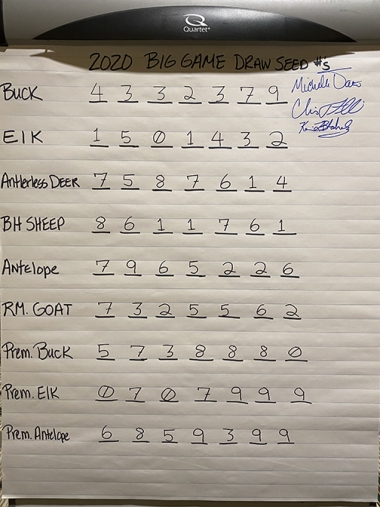 Quartet
2020 BIG GAME DRAW SEED #s
BUCK 4 3 3 2 3 7 9
ElK 1 5 0 1 4 3 2
Antlerless DEER 7 5 8 7 6 1 4
BH SHEEP 8 6 1 1 7 6 1
Antelope 7 9 6 5 2 2 6
RM. GOAT 7 3 2 5 5 6 2
Prem. Buck 5 7 3 8 8 8 0
Prem. Elk 0 7 0 7 9 9 9
Prem. Antelope 6 8 5 9 3 9 9